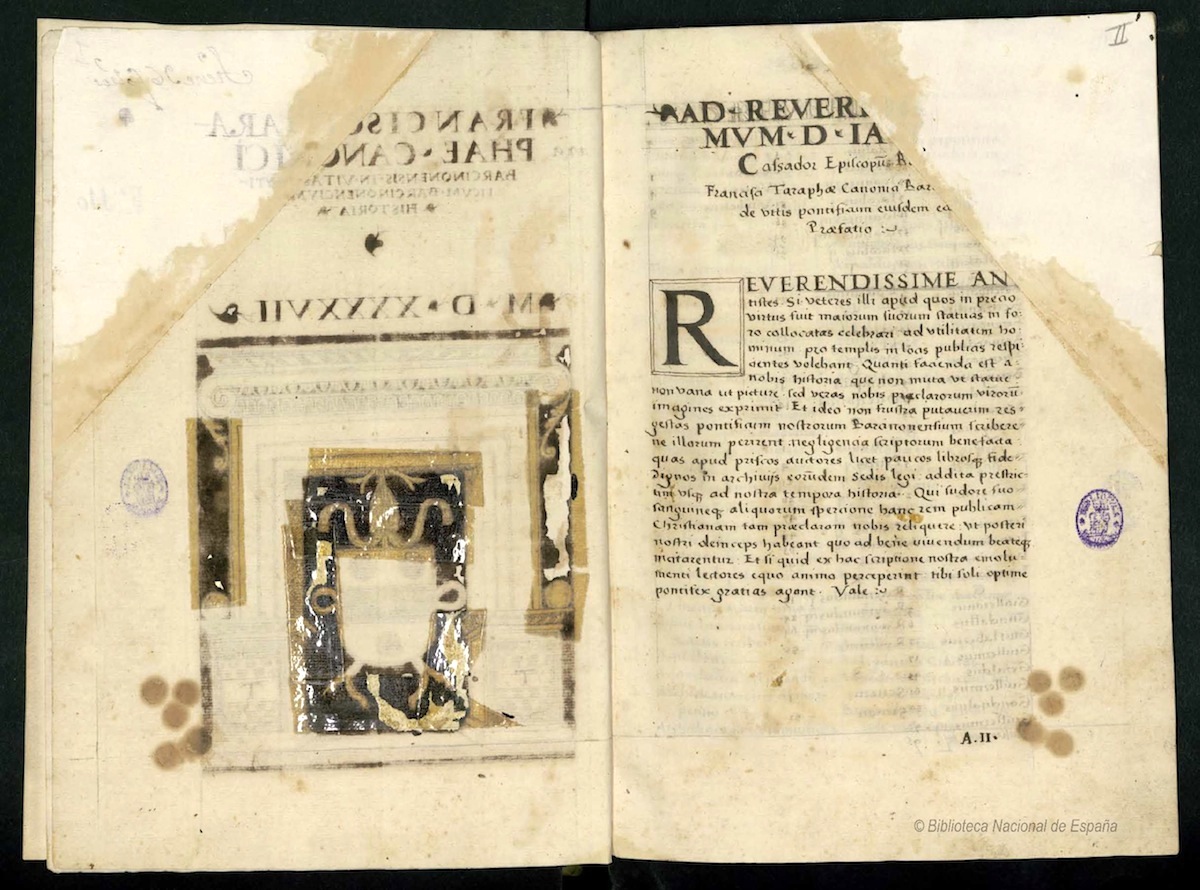 FRANCISC ARA
PHAE · CANONICI
BARCINONENSIS · IN · VITAS
TICUM · BARCINONENCIVM
HISTORIA
M · D · XXXXVII
II
AD · REVER
MVM · D · IA
Cassador Episcopū B.
Francisci Taraphæ Canonici Bar.
de vitis pontificum eiusdem
Præfatio :~
REVERENDISSIME AN
tistes. Si veteres illi apud quos in precio
virtus fuit maiorum suorum statuas in fo-
ro collocatas celebrari ad vtilitatem ho-
minum pro templis in locis publicis respi-
cientes volebant. Quanti facienda est a
nobis historia que non muta vt statue
non vana ut picture sed veras nobis præclarorum virorū
imagines exprimit. Et ideo non frustra putauerim res
gestas pontificum nostrorum Barcinonensium scribere
ne illorum perirent negligencia scriptorum benefacta
quas apud priscos auctores licet paucos librosq; fide
dignos in archivijs eorūdem Sedis legi addita
vsq; ad nostra tempora historia. Qui sudore suo
sanguineq; aliquorum spercione hanc rem publicam
Christianam tam præclaram nobis reliquere. Vt posteri
nostri deinceps habeant quo ad bene viuendum beateq;
Et si quid ex hac scriptione nostra emolu-
menti lectores equo animo perceperint tibi soli optime
pontifex gratias agant. Vale :~
A.II.
© Biblioteca Nacional de España